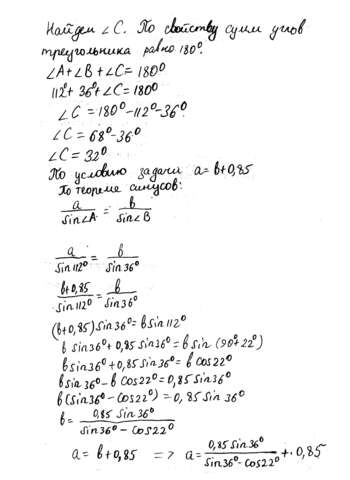 Найдем ∠C. По свойству сумм углов
треугольника равно 180°.
∠A+∠B+∠C=180°
112°+36°+∠C=180°
∠C=180°-112°-36°.
∠C=68°-36°
∠C=32°
По условию задачи a=b+0,85
По теореме синусов:
a/sin∠A = b/sin∠B
a/sin112° = b/sin36°
b+0,85/sin112° = b/sin36°
(b+0,85)sin36°=b sin112°
b sin36°+0,85 sin36°=b sin(90°+22°)
b sin36°+0,85 sin36°=b cos22°
b sin36°-b cos22°=0,85 sin36°
b(sin36°-cos22°)=0,85 sin36°
b= 0,85 sin36°/sin36°-cos22°
a=b+0,85 => a= 0,85 sin36°/sin36°-cos22° +0,85